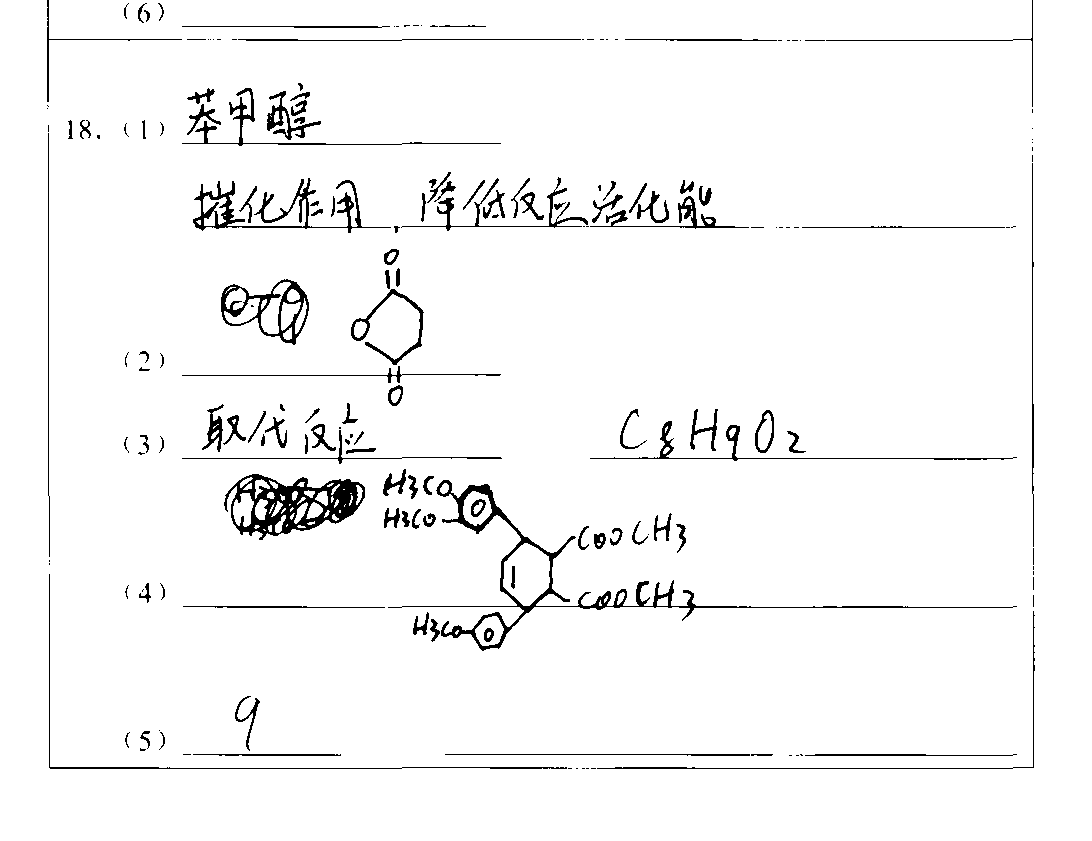 （6）
18.（1）苯甲醇
摧化作用，降低反应活化能
O
O
（2）
O
（3）取代反应 C8H9O2
H3CO
H3CO
COOCH3
（4）
COOCH3
H3CO
（5）9